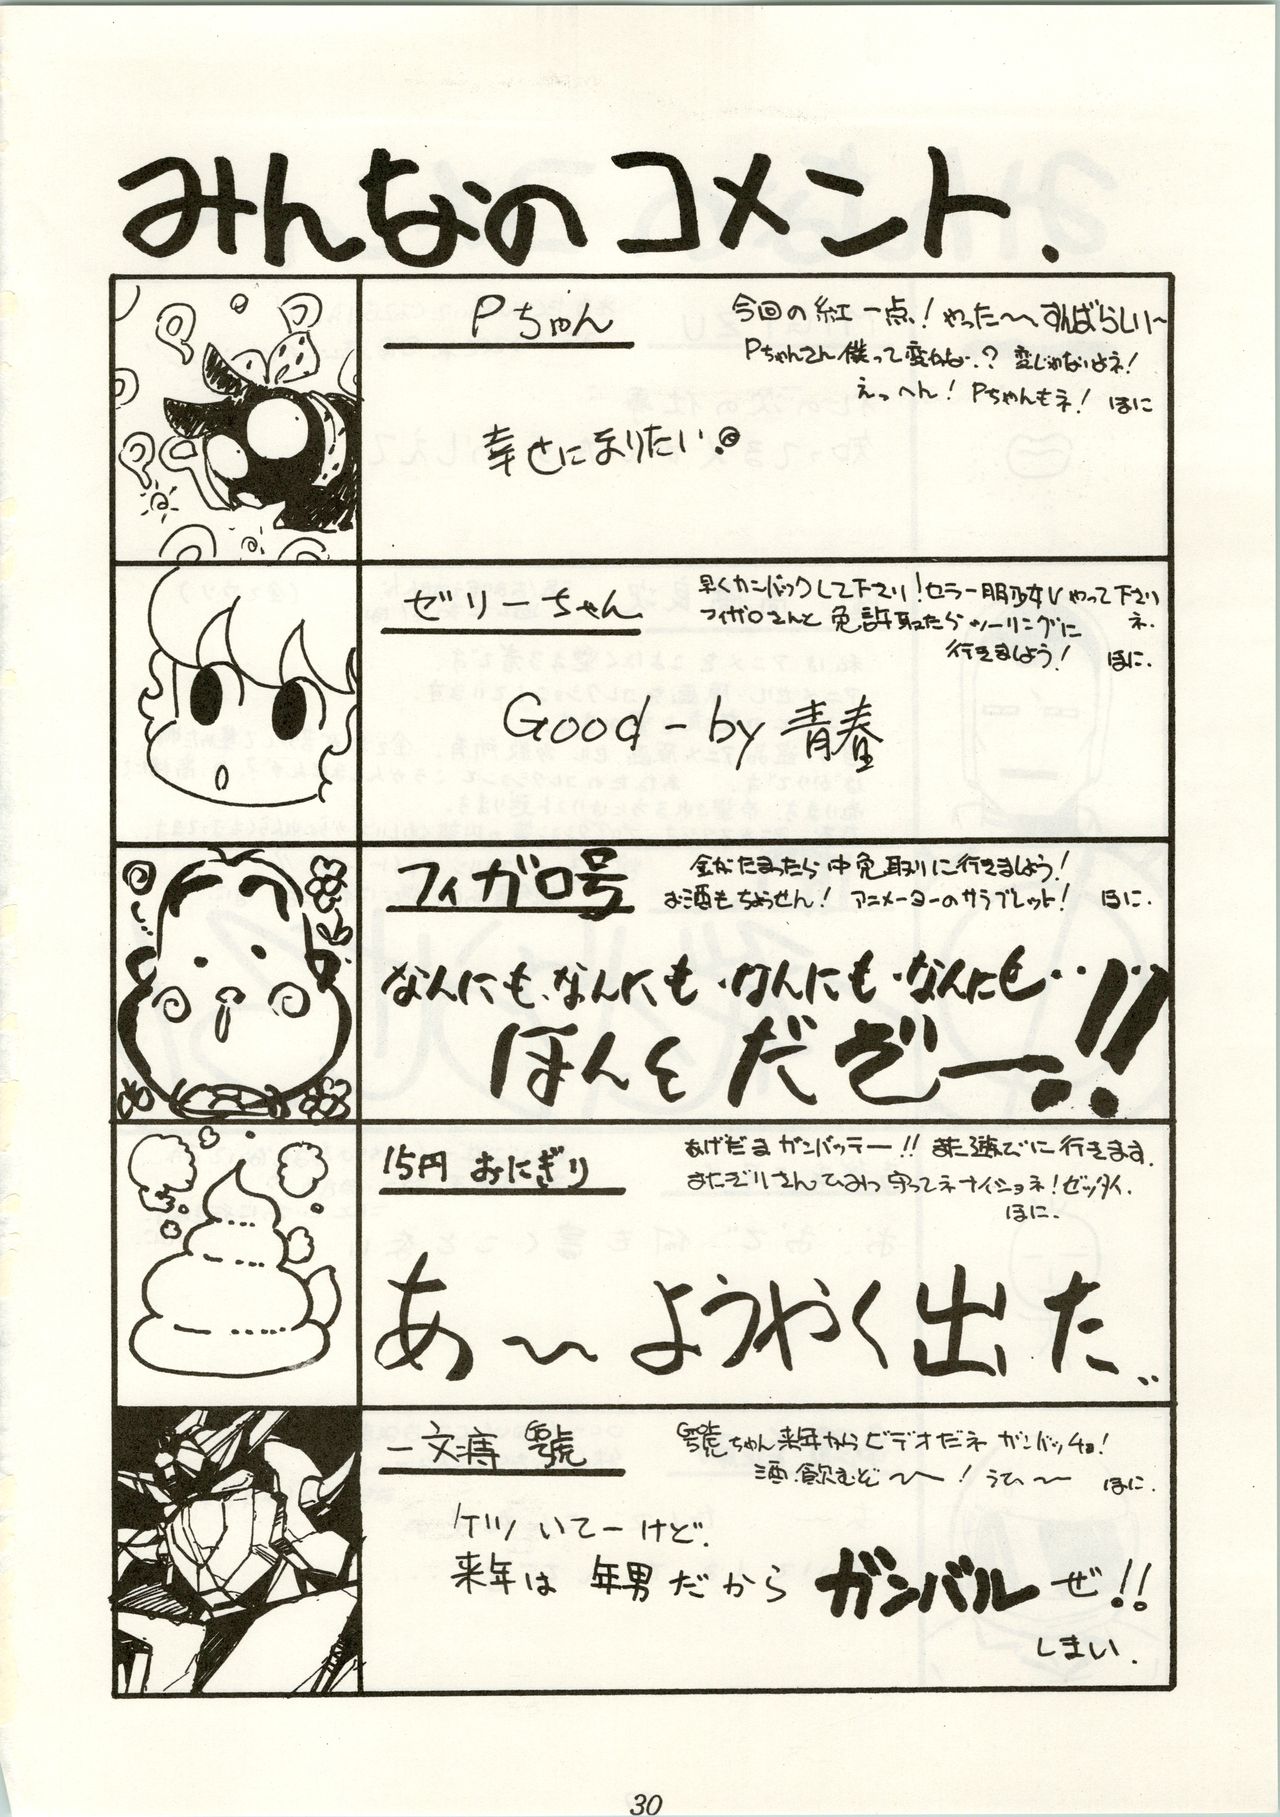 みんなのコメント.
Pちゃん
今回の紅一点!やった〜〜すんばらしい〜
Pちゃんさん僕って変かな?変じゃないよネ!
えっへん!Pちゃんもネ! ほに
幸せになりたい。
ゼリーちゃん
早くカンバックして下さい!セラー服少女Vやって下さい
ネ.
フィガロさんと免許取たらツーリングに
行きましよう! ほに.
Good-by青春
フィガロ号
金がたまったら中免取りに行きましよう!
お酒もちょうせん!アニメーターのサラブレット! ほに.
なんにも、なんにも・なんにも・なんにも・・・!!
ほんとだぞー!!
15円おにぎり
あげだまガンバッテー!!また遊びに行きます.
またぞリさんて
守ってネナイショネ!ゼッタイ.
ほに.
あ〜〜ようやく出た..
號ちゃん来年からビデオだネガンバッチョ!
酒飲むぞ〜〜!うひ〜〜 ほに.
ケツいてーけど.
来年は年男だからガンバルぜ!!
しまい.
30